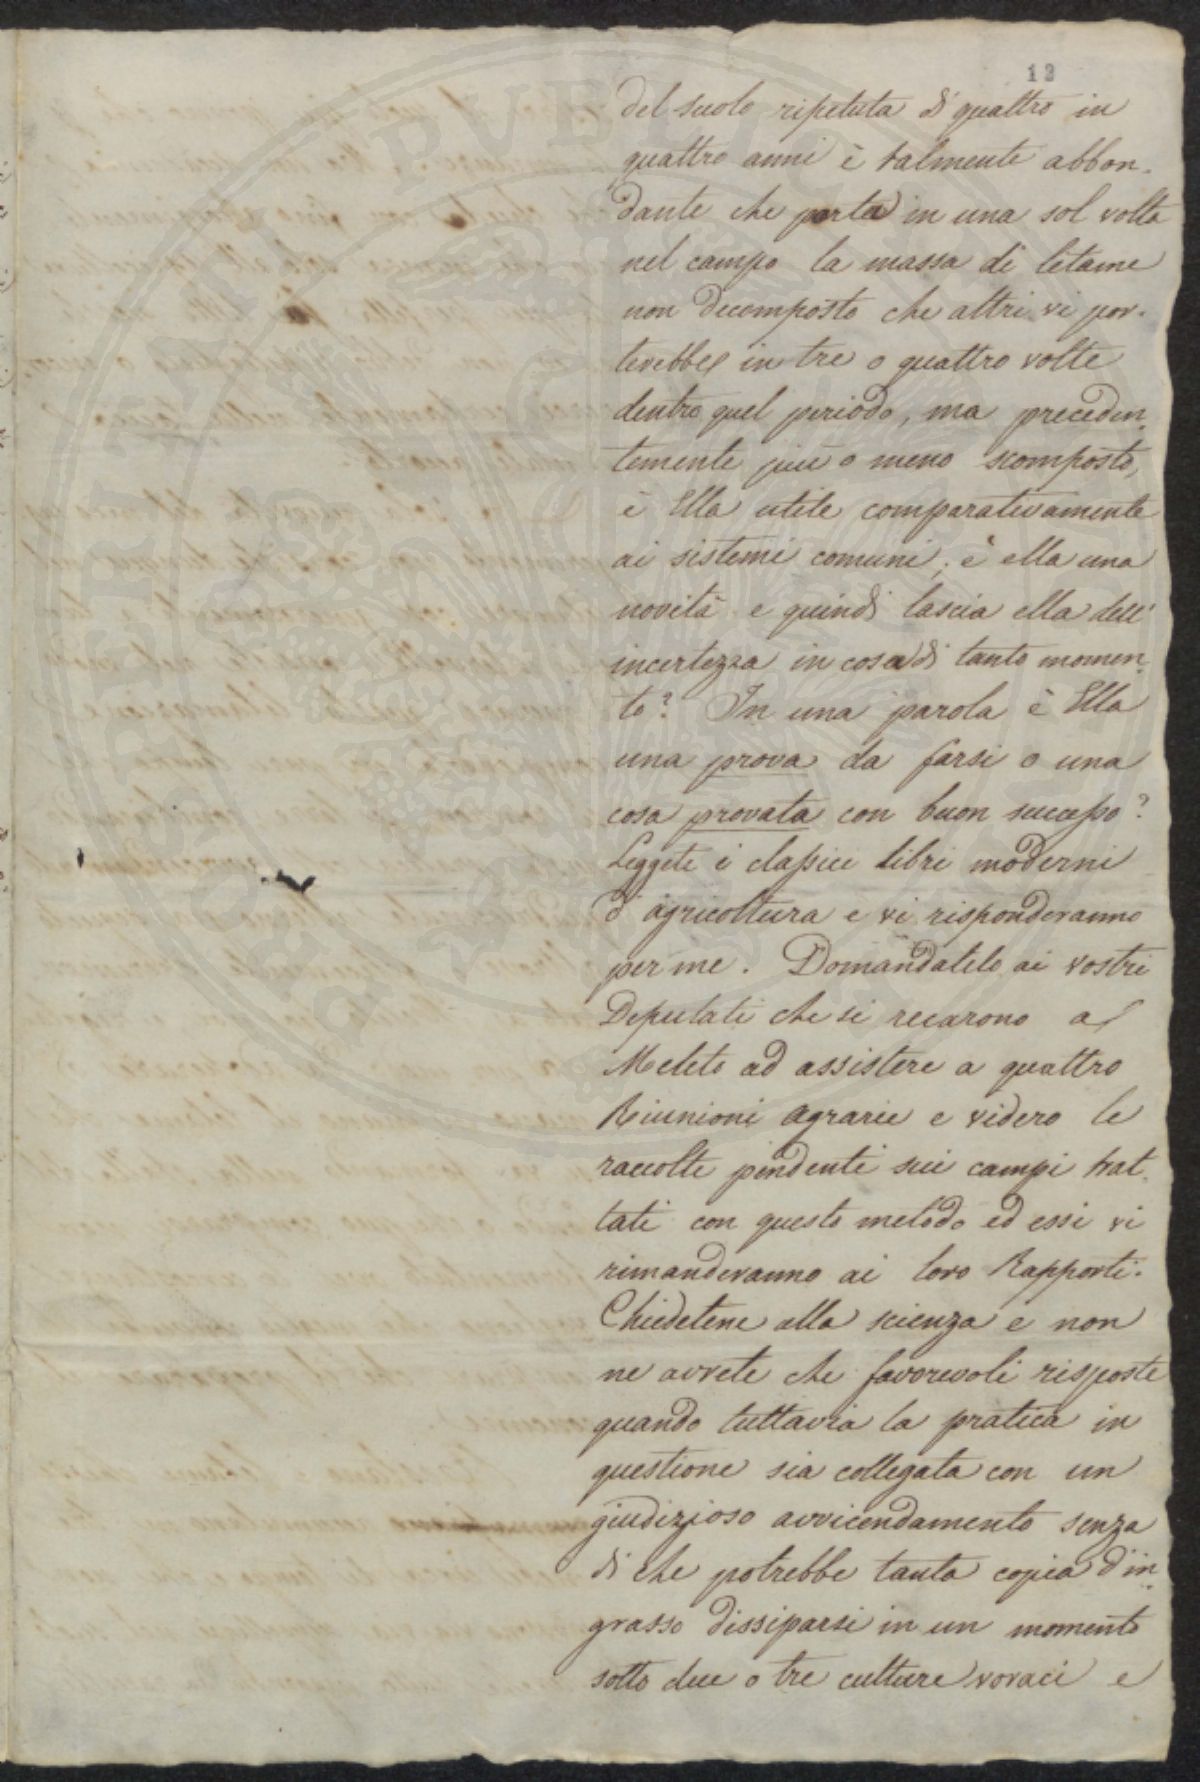 12
del suolo ripetuta di quattro in
quattro anni è talmente abbon-
dante che porta in una sol volta
nel campo la massa di letame
non decomposto che altri vi por-
terebbe in tre o quattro volte
dentro quel periodo, ma preceden-
temente più o meno scomposto,
è Ella utile comparativamente
ai sistemi comuni; è ella una
novità e quindi lascia ella dell'
incertezza in cosa di tanto momen-
to? In una parola è Ella
una prova da farsi o una
cosa provata con buon successo?
Leggete i classici libri moderni
d'agricoltura e vi risponderanno
per me. Domandatelo ai vostri
Deputati che si recarono a
Meleto ad assistere a quattro
Riunioni agrarie e videro le
raccolte pendenti sui campi trat-
tati con questo metodo ed essi vi
rimanderanno ai loro Rapporti.
Chiedetene alla scienza e non
ne avrete che favorevoli risposte
quando tuttavia la pratica in
questione sia collegata con un
giudizioso avvicendamento senza
di che potrebbe tanta copia d'in-
grasso dissiparsi in un momento
sotto due o tre culture voraci e